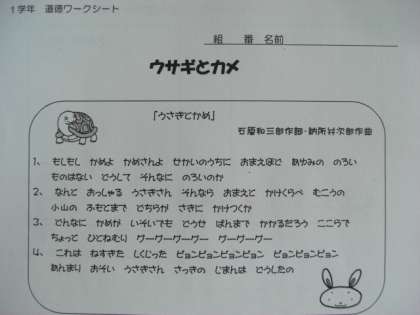 1学年 道徳ワークシート
組 番 名前
ウサギとカメ
「うさぎとかめ」
石原和三郎作詞・納所弁次郎作曲
1、 もしもし かめよ かめさんよ せかいのうちに おまえほど あゆみの のろい
ものはない どうして そんなに のろいのか
2、 なんと おっしゃる うさぎさん そんなら おまえと かけくらべ むこうの
小山の ふもとまで どちらが さきに かけつくか
3、 どんなに かめが いそいでも どうせ ばんまで かかるだろう ここらで
ちょっと ひとねむり グーグーグーグー グーグーグー
4、 これは ねすぎた しくじった ピョンピョンピョンピョン ピョンピョンピョン
あんまり おそい うさぎさん さっきの じまんは どうしたの